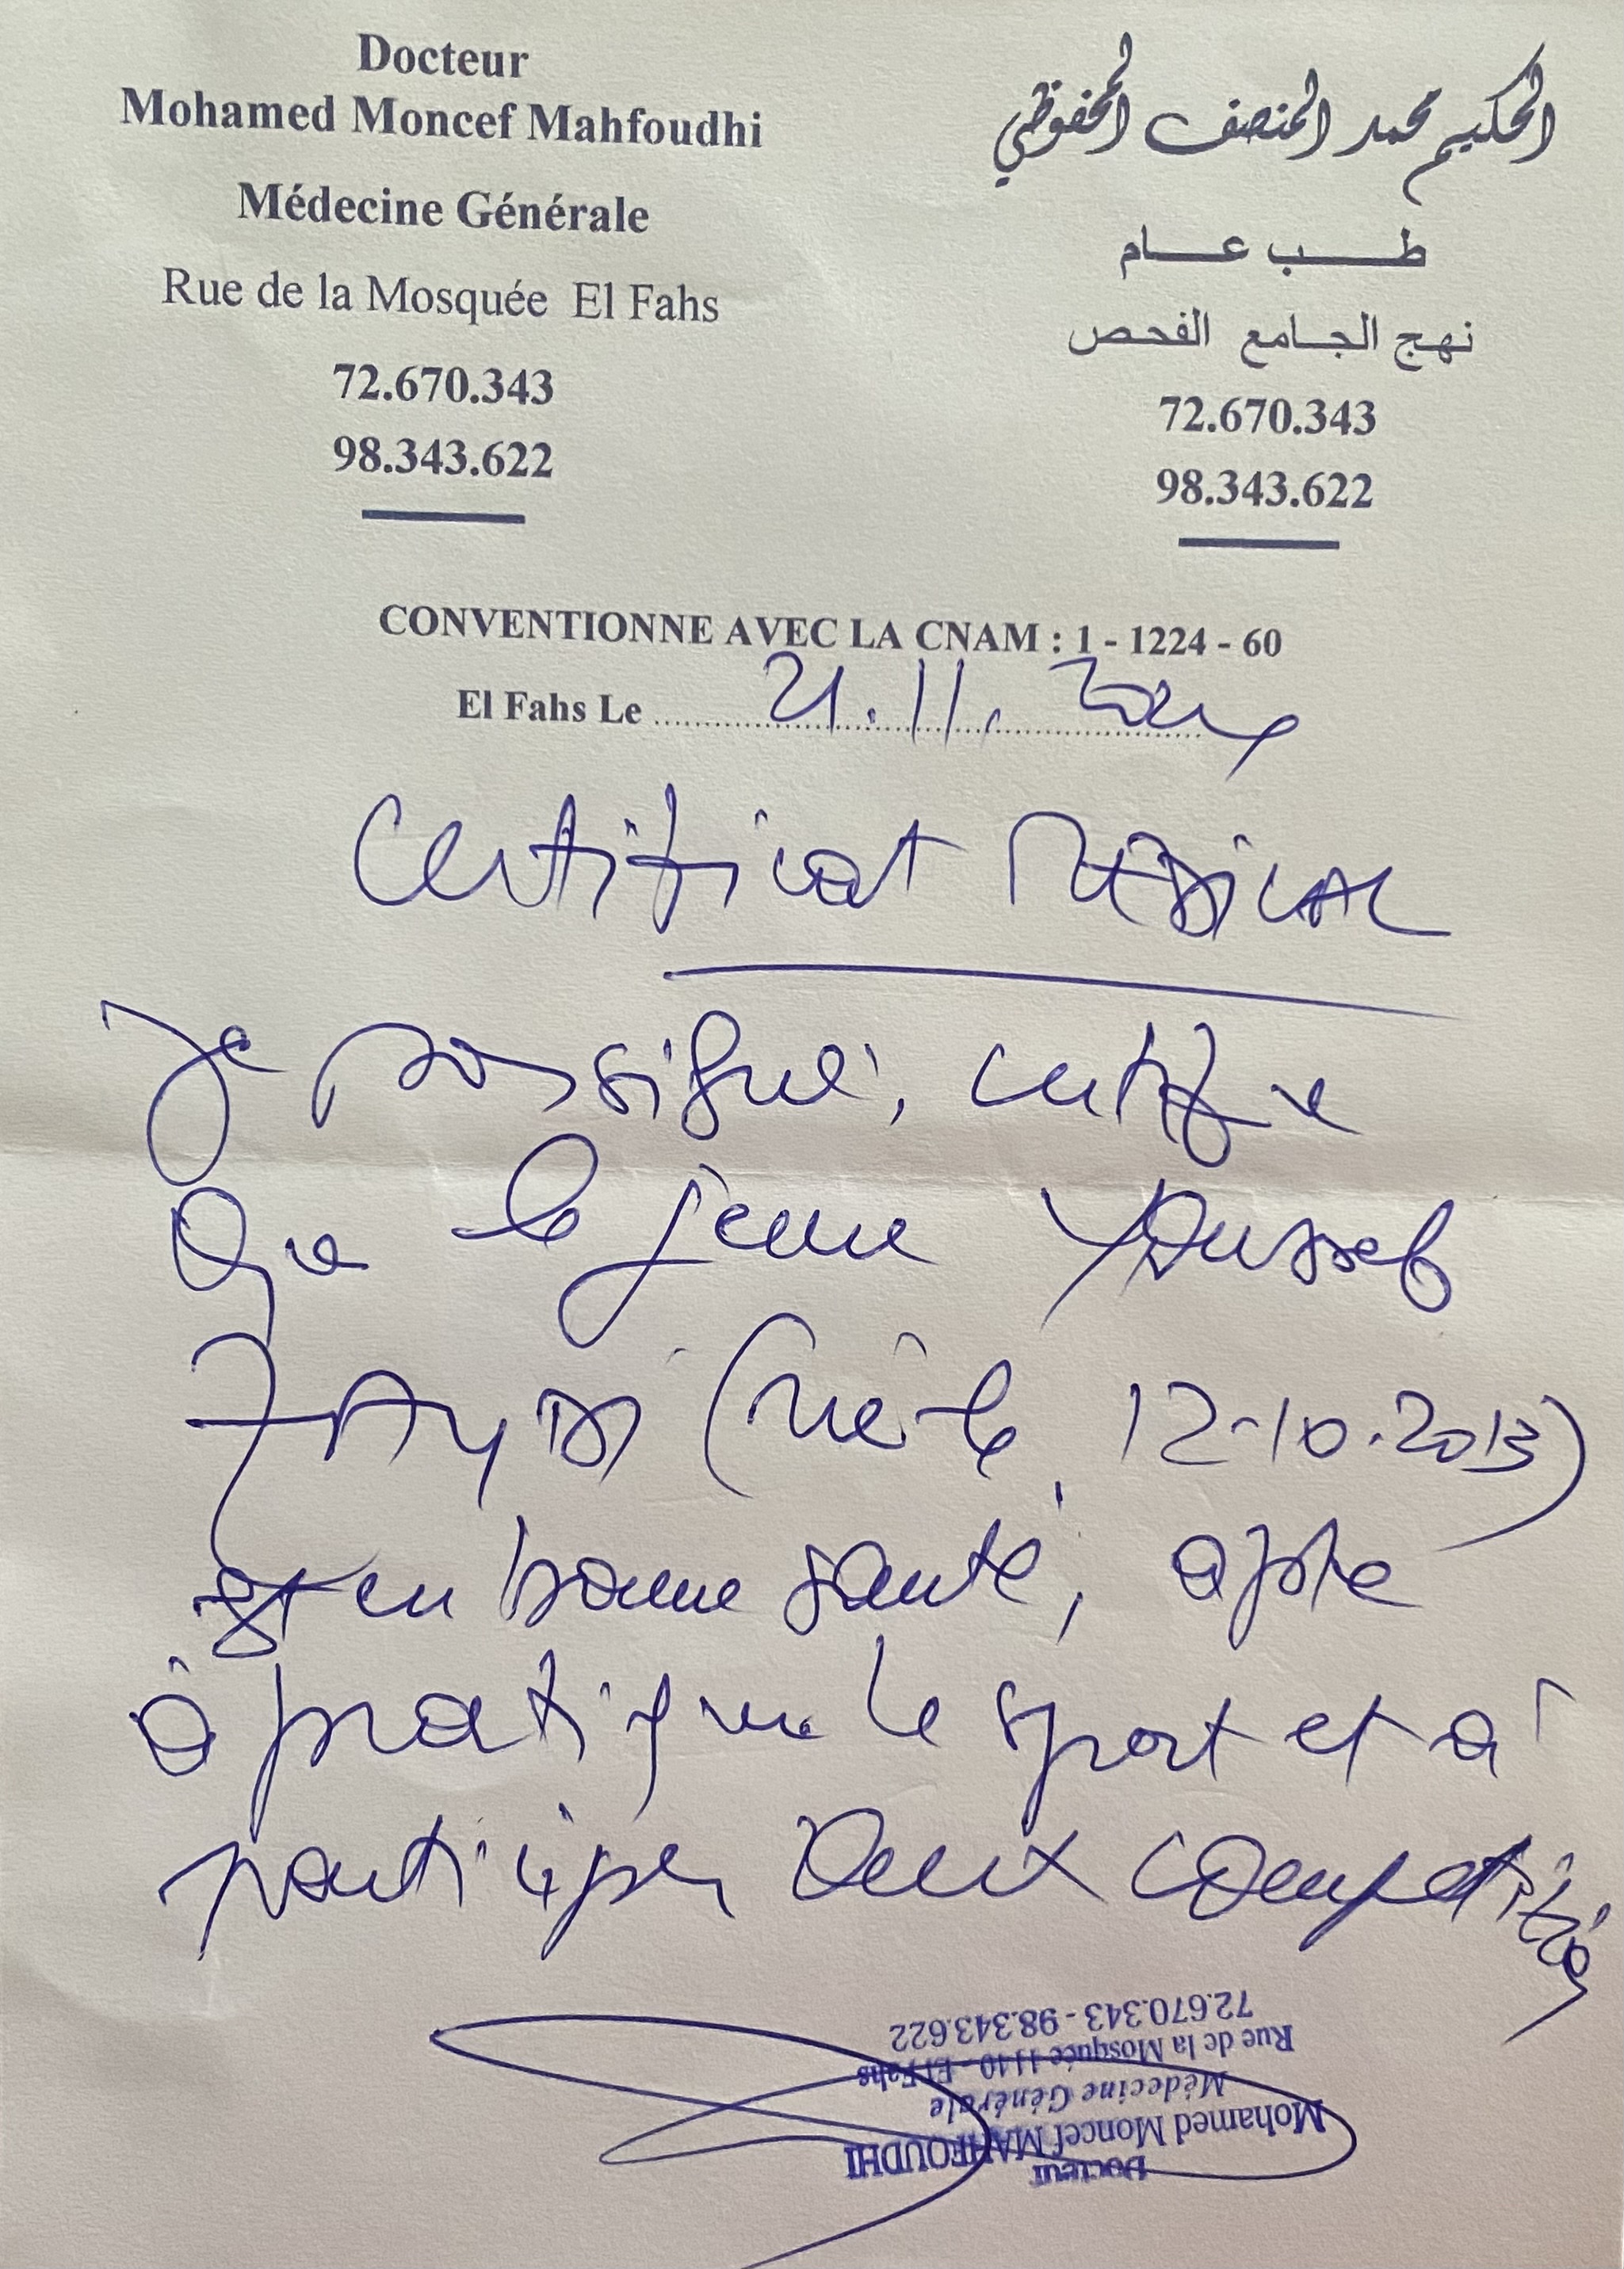 Docteur
Mohamed Moncef Mahfoudhi
Médecine Générale
Rue de la Mosquée El Fahs
72.670.343
98.343.622
الحكيم محمد المنصف المحفوظي
طب عام
نهج الجامع الفحص
72.670.343
98.343.622
CONVENTIONNE AVEC LA CNAM : 1 - 1224 - 60
El Fahs Le 21.11.
Certificat MEDICAL
Je soussigné, certifie
Que le jeune Youssef
(né le 12-10.2013)
est en bonne santé, apte
à pratiquer le sport et à
participer aux
Docteur
Mohamed Moncef MAHFOUDHI
Médecine Générale
Rue de la Mosquée 1140 - El Fahs
72.670.343 - 98.343.622